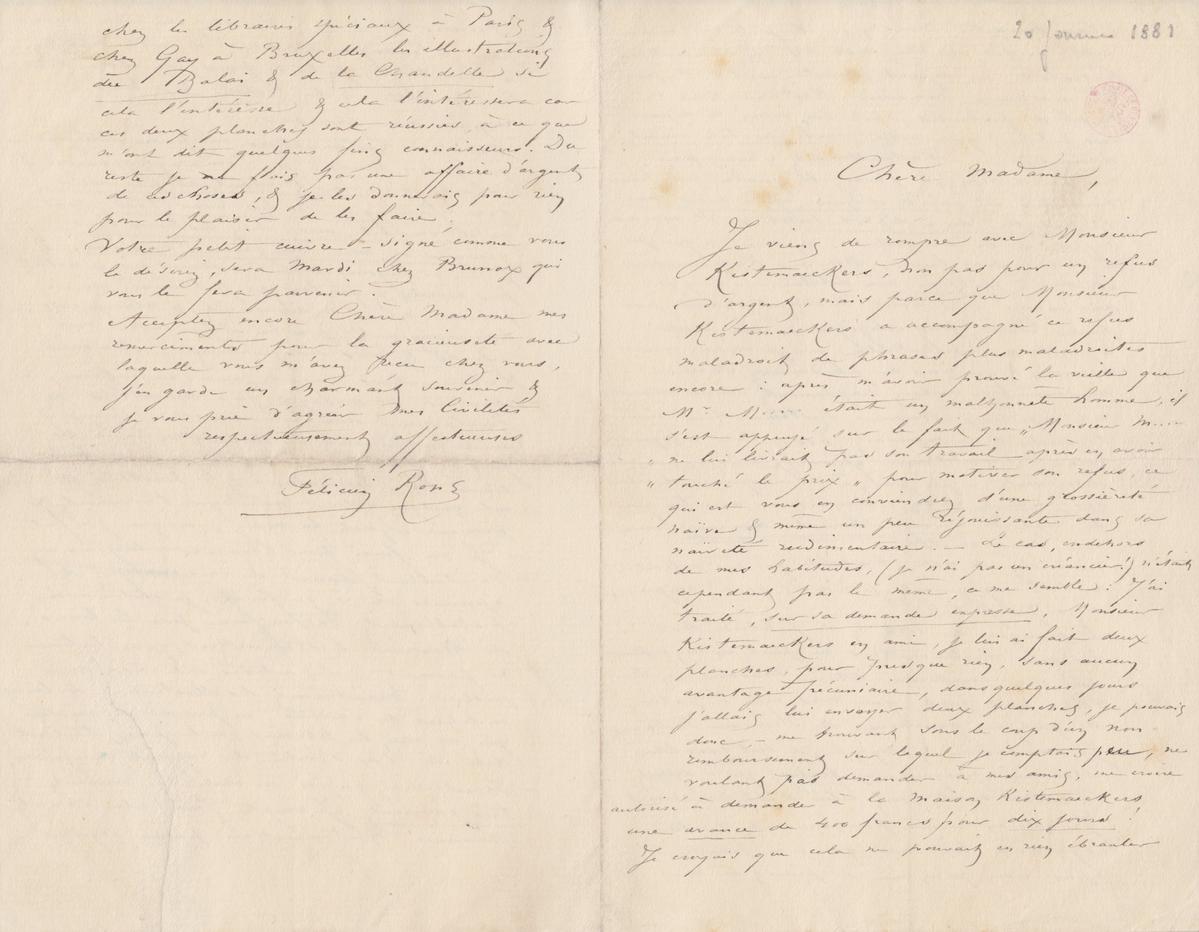 20 Janvier 1881
Chère Madame,
Je viens de rompre avec Monsieur
Kistemaeckers, non pas pour un refus
d'argent, mais parce que Monsieur
Kistemaeckers a accompagné ce refus
maladroit de phrases plus maladroites
encore : après m'avoir prouvé la veille que
Mr M..... était un malhonnête homme, il
s'est appuyé sur le fait que „Monsieur M....
„ ne lui livrait pas son travail après en avoir
„ touché le prix „ pour motiver son refus, ce
qui est vous en conviendrez d'une grossièreté
naïve & même un peu réjouissante dans sa
naïveté rudimentaire. — Le cas, endehors
de mes habitudes, (je n'ai pas un créancier!) n'était
cependant pas le même, ce me semble! J'ai
traité, sur sa demande expresse, Monsieur
Kistemaeckers en ami, je lui ai fait deux
planches, pour presque rien, sans aucun
avantage pécuniaire, dans quelques jours
j'allais lui envoyer deux planches, je pouvais
donc, – me trouvant sous le coup d'un non
remboursement sur lequel je comptais peu, ne
voulant pas demander à mes amis, me croire
autorisé à demander à la maison Kistemaeckers
une avance de 400 francs pour dix jours !
Je croyais que cela ne pouvait en rien ébranler
chez les libraires spéciaux à Paris &
chez Gay à Bruxelles les illustrations
du Balai & de la Chandelle si
cela l'intéresse & cela l'intéressera car
ces deux planches sont réussies, à ce que
m'ont dit quelques fins connaisseurs. Du
reste je ne fais pas une affaire d'argent
de ces choses, & je les donnerais pour rien
pour le plaisir de les faire.
Votre petit cuivre – signé comme vous
le désirez, sera Mardi chez Brunox qui
vous le fera parvenir.
Acceptez encore Chère Madame mes
remerciments pour la gracieuseté avec
laquelle vous m'avez reçu chez vous,
j'en garde un charmant souvenir &
je vous prie d'agréer mes Civilités
respectueusement affectueuses
Félicien Rops